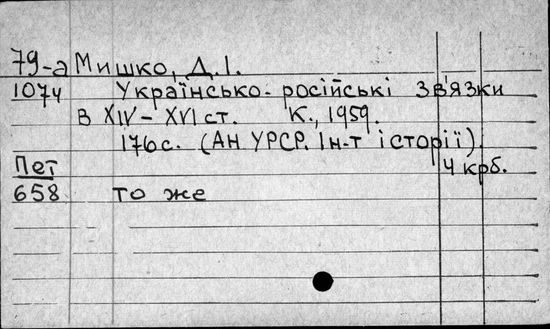 79-а Мишко, Д.І.
1074 Українсько-російські зв'язки
в XIV – XVI ст. К., 1959.
176 с. (АН УРСР. Ін-т історії).
Пет 4 крб.
658 то же